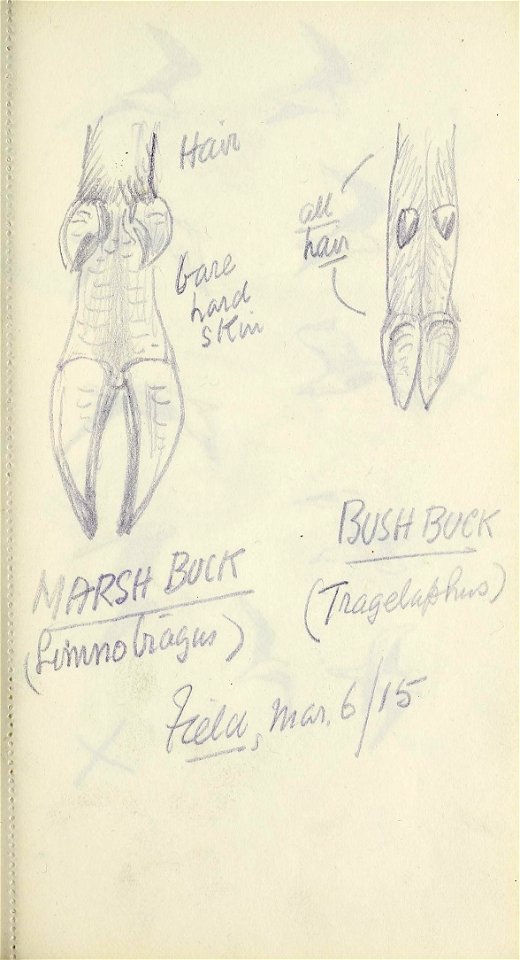 Hair
bare
hard
skin
all
hair
MARSH BUCK
(Limnotragus)
BUSH BUCK
(Tragelaphus)
Field, Mar. 6/15